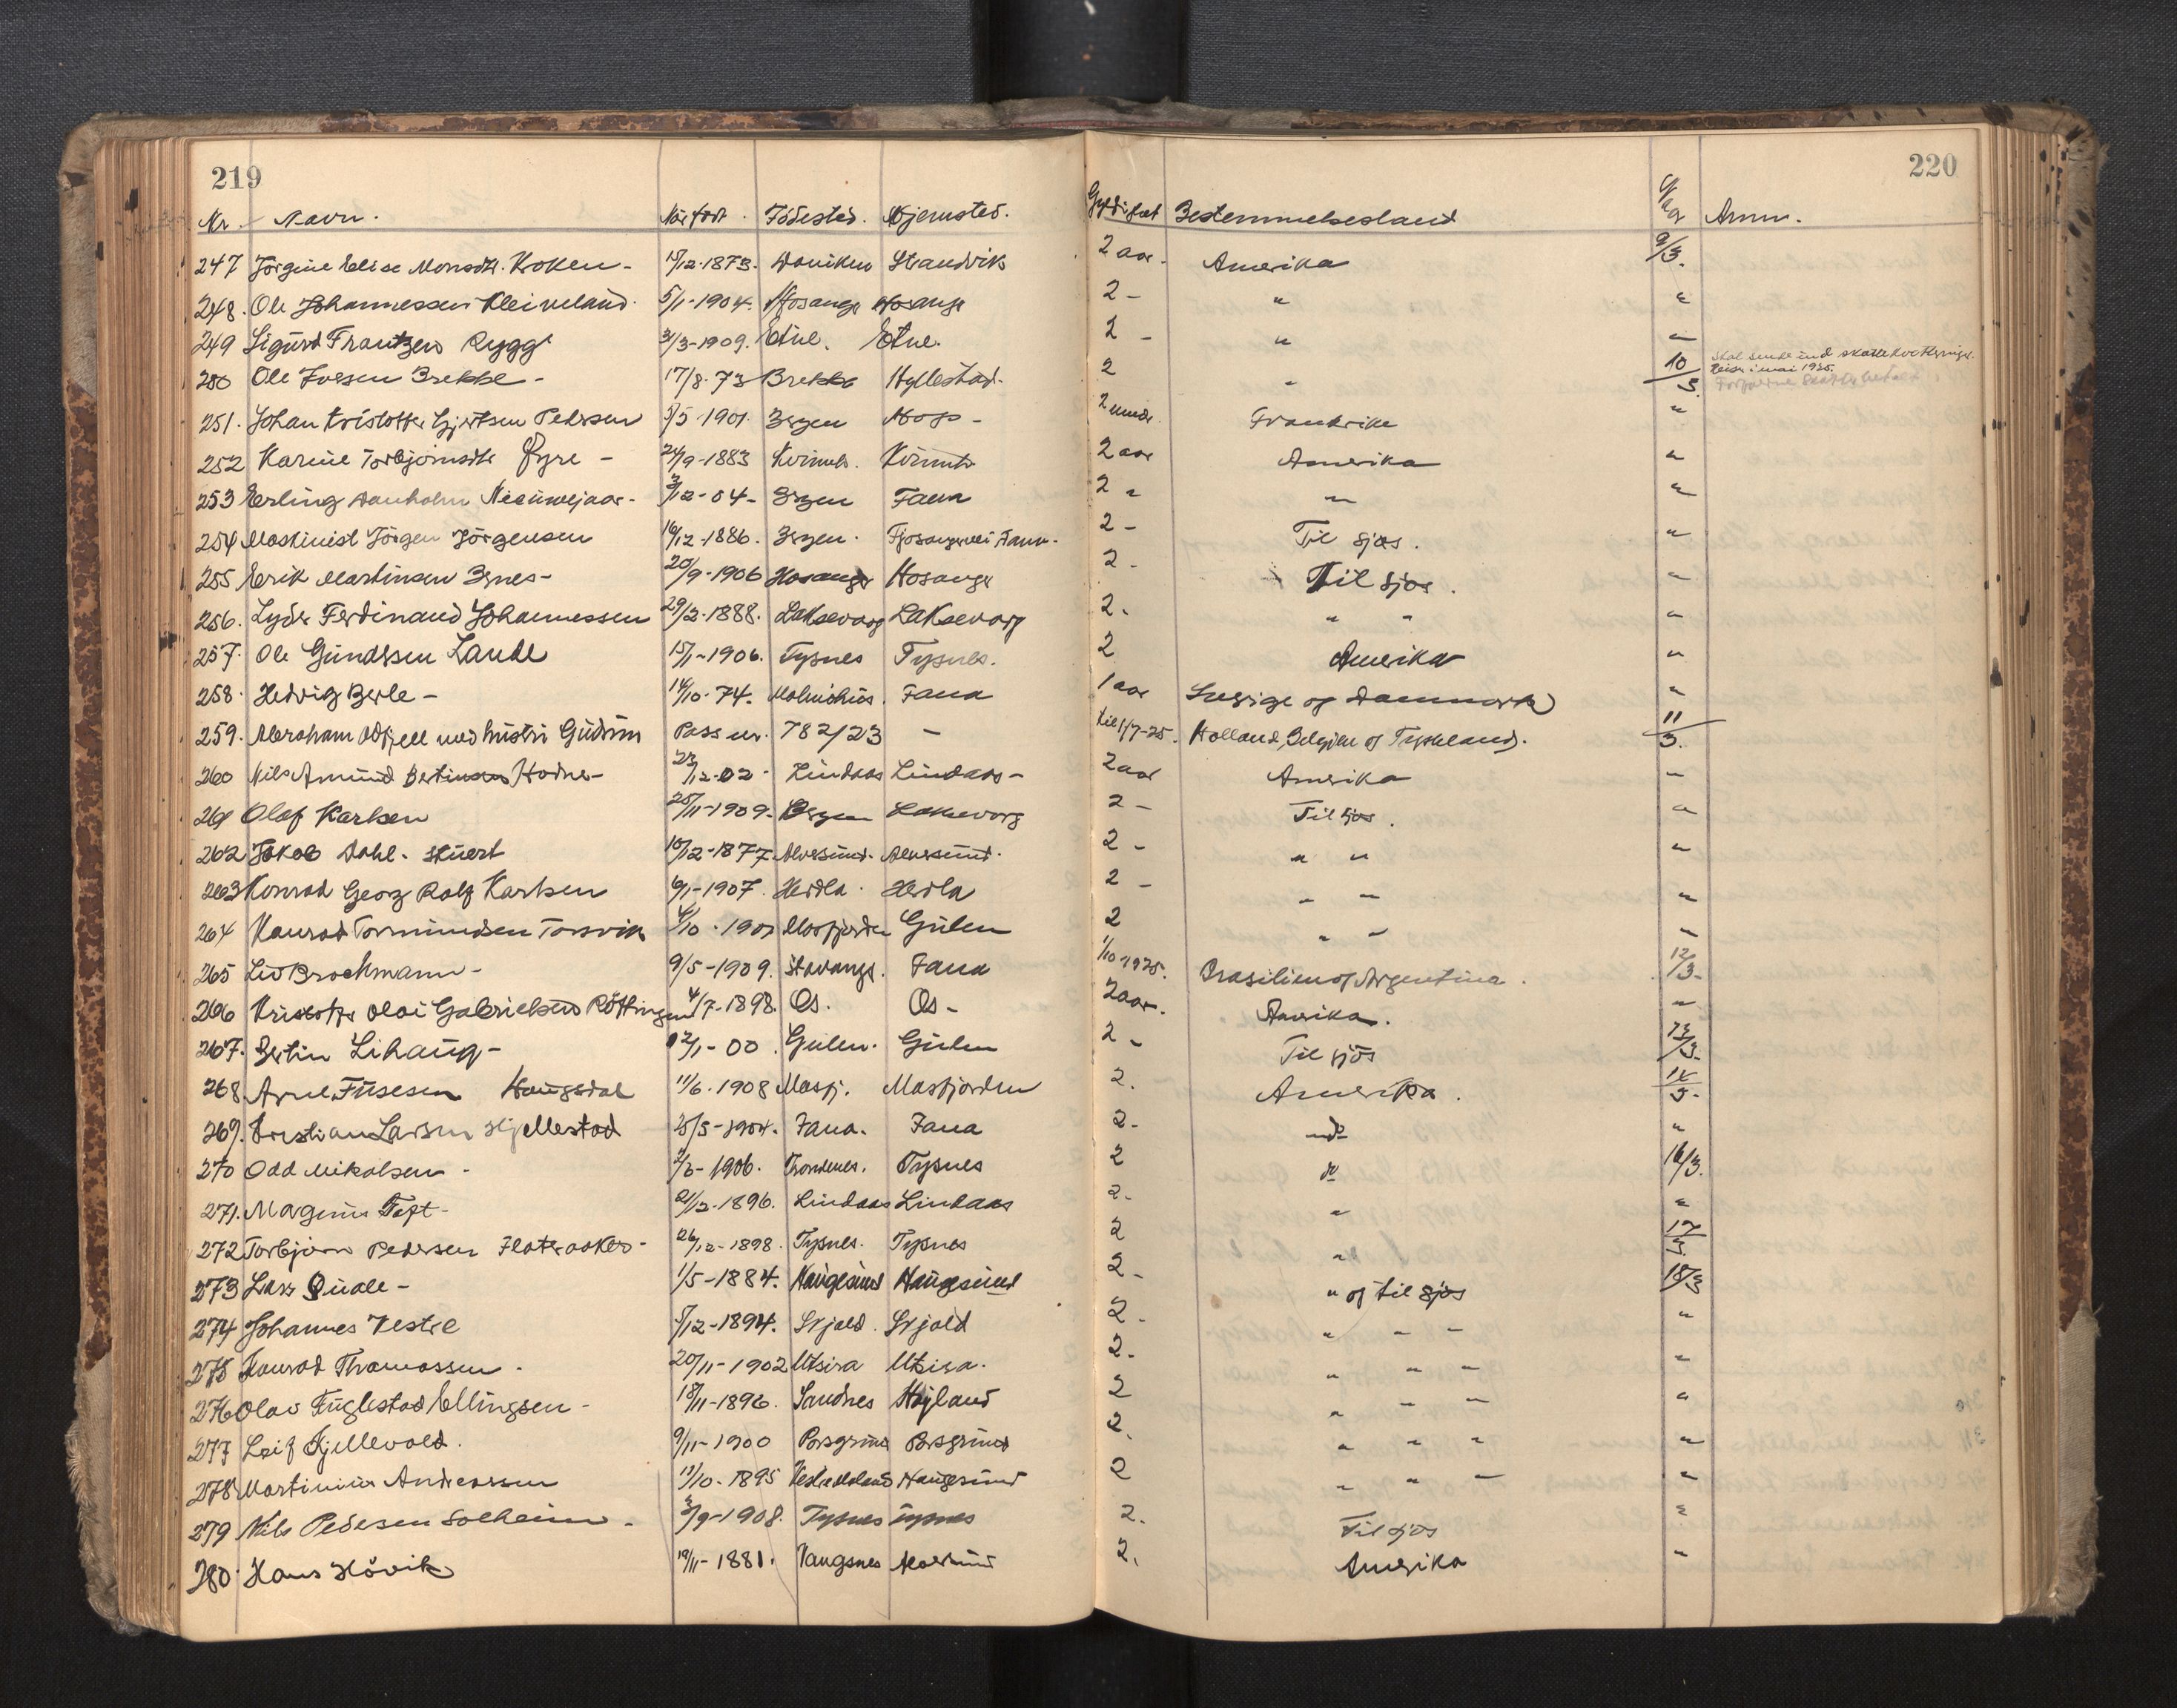 219 220
Nr. Navn. Naar født. Fødested. Hjemsted. Gyldighet Bestemmelsesland Anm.
247 Jørgine Elise Monsdtr. Kroken - 15/12-1873. Strandvik 2 aar. Amerika 9/3.
248. Ole Johannessen Kleiveland. 5/1-1904. Hosanger Hosanger 2 - " "
249 Sigurd Frantzen Rygg 31/3-1909. Etne. Etne. 2 - " "
250 Ole Iversen Brekke - 17/8-73 Brekke Hyllestad. 2 " 10/3 Skal sende ind skattekvittering. Reise i mai 1925.
251. Johan Kristoffer Gjertsen Pedersen 5/5-1901 Bergen Hop - 2 mndr. Frankrike "
252 Karine Torbjørnsdtr Øyre - 24/9-1883 Kvinnh. Kvinnh. 2 aar Amerika "
253 Erling Danholm Nieuwejaar - 3/12-04 - Bergen Fana 2 " " "
254 Maskinist Jørgen Jørgensen 16/12-1886. Bergen. Fjøsangervei Fana - 2 - Til sjøs. "
255 Erik Martinsen Bynes - 20/9-1906 Hosanger Hosanger 2 - Til sjøs. "
256. Lyder Ferdinand Johannessen 29/2-1888. Laksevaag Laksevaag 2. " " "
257. Ole Gundersen Lande 15/1-1906. Tysnes Tysnes. 2 Amerika "
258. Hedvig Berle - 14/10-74. Malmehus. Fana 1 aar Sverige og Danmark "
259. Abraham Odfjell med hustru Gudrun Pass nr. 782/23 - til 1/7-25. Holland, Belgien og Tyskland. 11/3.
260 Nils Amund Bertinsen Hodne - 23/12-02 - Lindaas Lindaas - 2 aar Amerika "
261 Olaf Karlsen 25/11-1909. Bergen Laksevaag 2 - Til sjøs. "
262 Jakob Dahl. stuert 10/12-1877 Alversund. Alversund. 2 - " " "
263 Konrad Georg Rolf Karlsen 6/1-1907. Herdla. Herdla 2 - " " "
264 Konrad Tormundsen Torsvik 4/10-1901 Masfjorden Gulen 2 " " "
265 Leo Brochmann - 9/5-1909. Stavanger. Fana 1/10-1925. Brasilien og Argentina. 12/3.
266 Kristoffer Olai Gabrielsen Röttingen 4/7-1898. Os. Os - 2 aar. Amerika. "
267. Bertin Lihaug - 12/1-00. Gulen. Gulen 2 - Til sjøs 13/3.
268 Arne Fusesen Haugsdal 11/6-1908 Masfj. Masfjorden 2. Amerika. 14/3.
269. Kristian Larsen Hjellestad 25/5-1904. Fana. Fana 2 - do "
270 Odd Mikalsen - 2/6-1906. Trondenes. Tysnes 2 do 16/3.
271. Magnus Toft - 21/12-1896. Lindaas Lindaas 2 - " "
272 Torbjørn Pedersen Flateraaker - 26/12-1898. Tysnes. Tysnes 2 " 17/3.
273 Lars Quale - 1/5-1884. Haugesund Haugesund 2 - " og til sjøs 18/3
274 Johannes Vestre 5/12-1894. Skjold. Skjold 2 - " " " "
275 Konrad Thomassen - 20/11-1902 Utsira Utsira. 2 - " " " "
276 Olav Fuglestad Ellingsen - 18/11-1896. Sandnes Høyland 2 " " " "
277 Leif Kjellevold. 9/11-1900 Porsgrund Porsgrund 2. " " " "
278 Martinius Andreassen 13/10-1895 Haugesund 2 " " " "
279 Nils Pedersen Solheim - 3/9-1908. Tysnes Tysnes 2. Til sjøs "
280. Hans Hövik 19/11-1881. Vangsnes 2. Amerika "